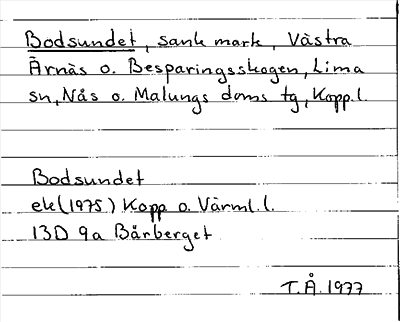 Bodsundet, sank mark, Västra
Ärnäs o. Besparingsskogen, Lima
sn, Nås o. Malungs doms tg, Kopp.l.
Bodsundet
ek(1975) Kopp o. Värml.l.
13D 9a Bårberget
T.Å. 1977